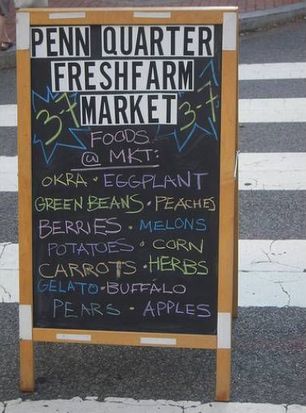 PENN QUARTER
FRESHFARM
MARKET
3-7 3-7
FOODS
@ MKT:
OKRA · EGGPLANT
GREEN BEANS · PEACHES
BERRIES · MELONS
POTATOES · CORN
CARROTS · HERBS
GELATO · BUFFALO
PEARS · APPLES